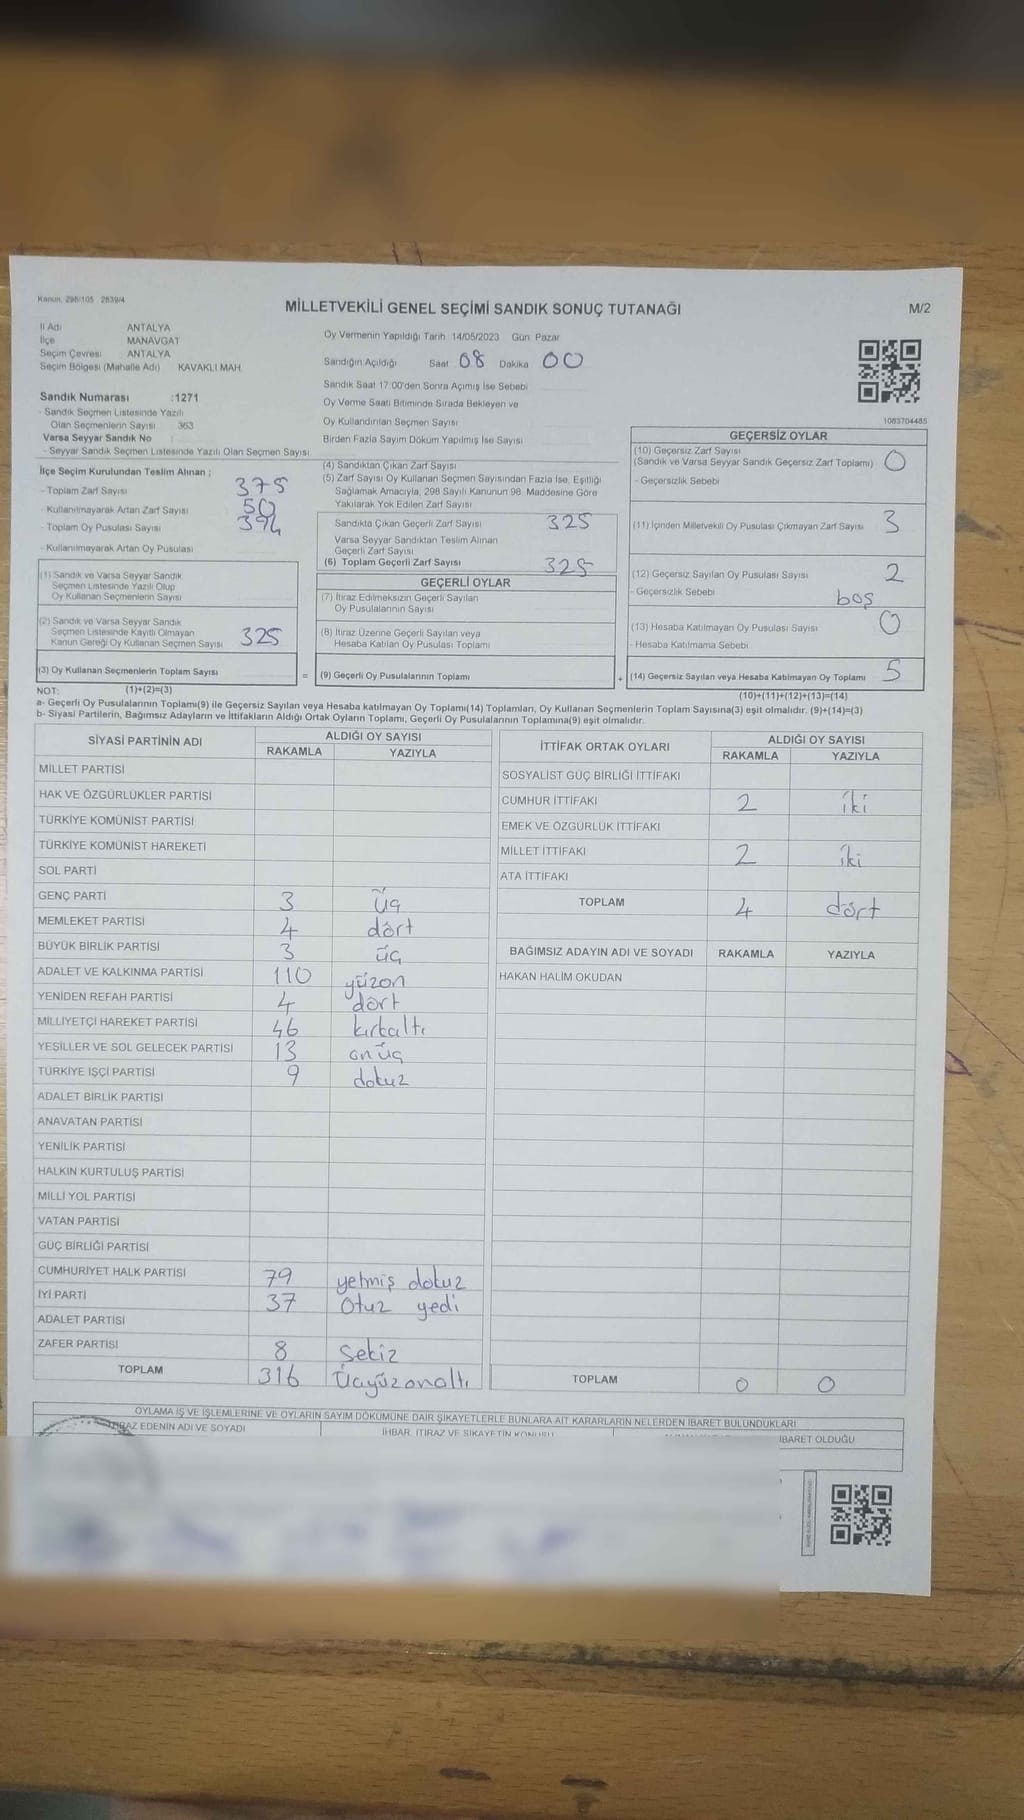 Kanun: 298/105 2839/4
MİLLETVEKİLİ GENEL SEÇİMİ SANDIK SONUÇ TUTANAĞI
M/2
İl Adı ANTALYA
İlçe MANAVGAT
Seçim Çevresi ANTALYA
Seçim Bölgesi (Mahalle Adı) KAVAKLI MAH.
Sandık Numarası :1271
- Sandık Seçmen Listesinde Yazılı
Olan Seçmenlerin Sayısı 363
Varsa Seyyar Sandık No :
- Seyyar Sandık Seçmen Listesinde Yazılı Olan Seçmen Sayısı
Oy Vermenin Yapıldığı Tarih 14/05/2023 Gün Pazar
Sandığın Açıldığı Saat 08 Dakika 00
Sandık Saat 17:00'den Sonra Açımış İse Sebebi
Oy Verme Saati Bitiminde Sırada Bekleyen ve
Oy Kullandırılan Seçmen Sayısı
Birden Fazla Sayım Döküm Yapılmış İse Sayısı
1083704485
İlçe Seçim Kurulundan Teslim Alınan ;
- Toplam Zarf Sayısı 375
- Kullanılmayarak Artan Zarf Sayısı 50
- Toplam Oy Pusulası Sayısı
- Kullanılmayarak Artan Oy Pusulası
(1) Sandık ve Varsa Seyyar Sandık
Seçmen Listesinde Yazılı Olup
Oy Kullanan Seçmenlerin Sayısı
(2) Sandık ve Varsa Seyyar Sandık
Seçmen Listesinde Kayıtlı Olmayan
Kanun Gereği Oy Kullanan Seçmen Sayısı 325
(3) Oy Kullanan Seçmenlerin Toplam Sayısı
(4) Sandıktan Çıkan Zarf Sayısı
(5) Zarf Sayısı Oy Kullanan Seçmen Sayısından Fazla İse, Eşitliği
Sağlamak Amacıyla, 298 Sayılı Kanunun 98. Maddesine Göre
Yakılarak Yok Edilen Zarf Sayısı
Sandıkta Çıkan Geçerli Zarf Sayısı 325
Varsa Seyyar Sandıktan Teslim Alınan
Geçerli Zarf Sayısı
(6) Toplam Geçerli Zarf Sayısı 325
GEÇERLİ OYLAR
(7) İtiraz Edilmeksizin Geçerli Sayılan
Oy Pusulalarının Sayısı
(8) İtiraz Üzerine Geçerli Sayılan veya
Hesaba Katılan Oy Pusulası Toplamı
= (9) Geçerli Oy Pusulalarının Toplamı
GEÇERSİZ OYLAR
(10) Geçersiz Zarf Sayısı
(Sandık ve Varsa Seyyar Sandık Geçersiz Zarf Toplamı) 0
- Geçersizlik Sebebi
(11) İçinden Milletvekili Oy Pusulası Çıkmayan Zarf Sayısı 3
(12) Geçersiz Sayılan Oy Pusulası Sayısı 2
- Geçersizlik Sebebi boş
(13) Hesaba Katılmayan Oy Pusulası Sayısı 0
- Hesaba Katılmama Sebebi
+ (14) Geçersiz Sayılan veya Hesaba Katılmayan Oy Toplamı 5
NOT: (1)+(2)=(3)
(10)+(11)+(12)+(13)=(14)
a- Geçerli Oy Pusulalarının Toplamı(9) ile Geçersiz Sayılan veya Hesaba katılmayan Oy Toplamı(14) Toplamları, Oy Kullanan Seçmenlerin Toplam Sayısına(3) eşit olmalıdır. (9)+(14)=(3)
b- Siyasi Partilerin, Bağımsız Adayların ve İttifakların Aldığı Ortak Oyların Toplamı, Geçerli Oy Pusulalarının Toplamına(9) eşit olmalıdır.
SİYASİ PARTİNİN ADI ALDIĞI OY SAYISI
RAKAMLA YAZIYLA
MİLLET PARTİSİ
HAK VE ÖZGÜRLÜKLER PARTİSİ
TÜRKİYE KOMÜNİST PARTİSİ
TÜRKİYE KOMÜNİST HAREKETİ
SOL PARTİ
GENÇ PARTİ 3 üç
MEMLEKET PARTİSİ 4 dört
BÜYÜK BİRLİK PARTİSİ 3 üç
ADALET VE KALKINMA PARTİSİ 110 yüzon
YENİDEN REFAH PARTİSİ 4 dört
MİLLİYETÇİ HAREKET PARTİSİ 46 kırkaltı
YEŞİLLER VE SOL GELECEK PARTİSİ 13 onüç
TÜRKİYE İŞÇİ PARTİSİ 9 dokuz
ADALET BİRLİK PARTİSİ
ANAVATAN PARTİSİ
YENİLİK PARTİSİ
HALKIN KURTULUŞ PARTİSİ
MİLLİ YOL PARTİSİ
VATAN PARTİSİ
GÜÇ BİRLİĞİ PARTİSİ
CUMHURİYET HALK PARTİSİ 79 yetmiş dokuz
İYİ PARTİ 37 Otuz yedi
ADALET PARTİSİ
ZAFER PARTİSİ 8 Sekiz
TOPLAM 316 Üçyüzonaltı
İTTİFAK ORTAK OYLARI ALDIĞI OY SAYISI
RAKAMLA YAZIYLA
SOSYALİST GÜÇ BİRLİĞİ İTTİFAKI
CUMHUR İTTİFAKI 2 iki
EMEK VE ÖZGÜRLÜK İTTİFAKI
MİLLET İTTİFAKI 2 iki
ATA İTTİFAKI
TOPLAM 4 dört
BAĞIMSIZ ADAYIN ADI VE SOYADI RAKAMLA YAZIYLA
HAKAN HALİM OKUDAN
TOPLAM 0 0
OYLAMA İŞ VE İŞLEMLERİNE VE OYLARIN SAYIM DÖKÜMÜNE DAİR ŞİKAYETLERLE BUNLARA AİT KARARLARIN NELERDEN İBARET BULUNDUKLARI
İTİRAZ EDENİN ADI VE SOYADI İHBAR, İTİRAZ VE ŞİKAYETİN KONUSU İBARET OLDUĞU